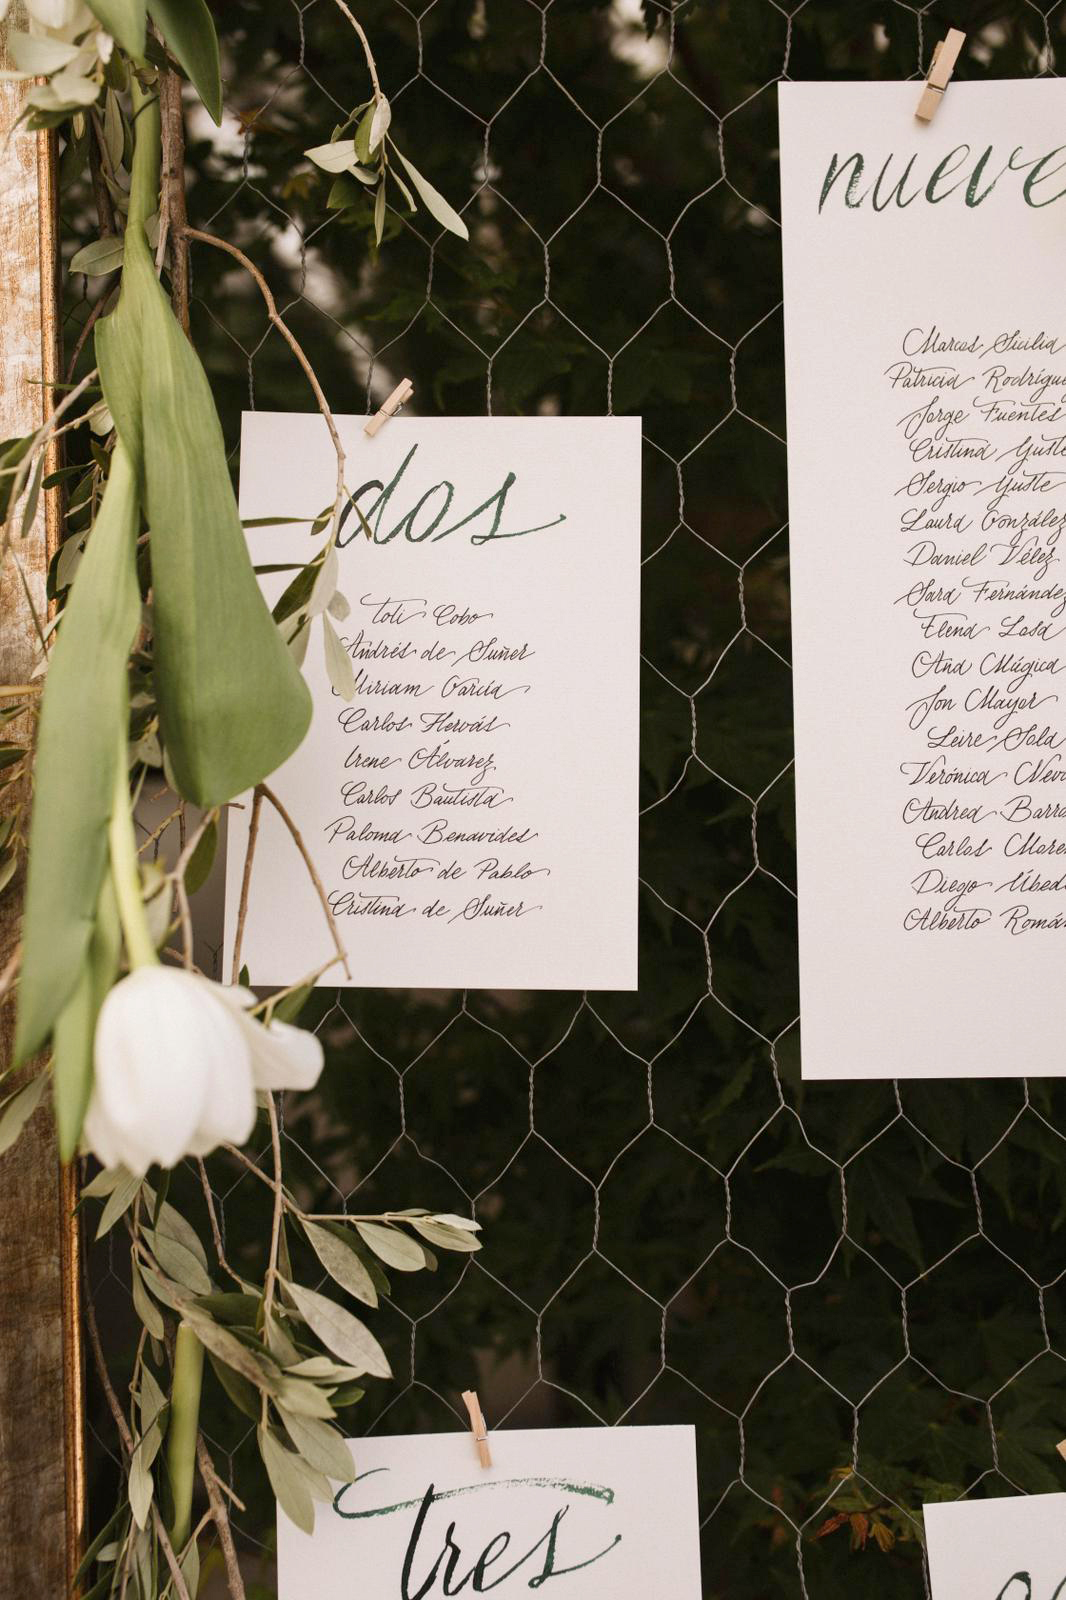 dos
Toli Cobo
Andrés de Suñer
Miriam García
Carlos Hervás
Irene Álvarez
Carlos Bautista
Paloma Benavides
Alberto de Pablo
Cristina de Suñer
nueve
Marcos Sicilia
Patricia Rodrígue
Jorge Fuentes
Cristina Yuste
Sergio Yuste
Laura González
Daniel Vélez
Sara Fernández
Elena Losa
Ana Múgica
Jon Mayor
Leire Sola
Verónica
Andrea Barr
Carlos
Diego Úbed
Alberto Romá
Tres